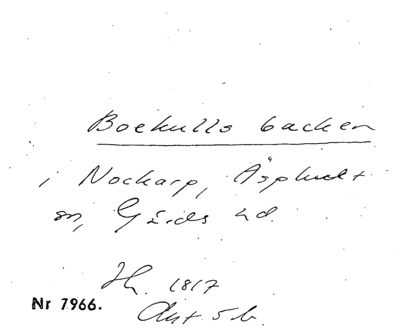 Boekulls backen
i Nockarp, Äsphult
sn, Gärds hd.
Hh. 1817
Nr 7966.
Akt 5 b.